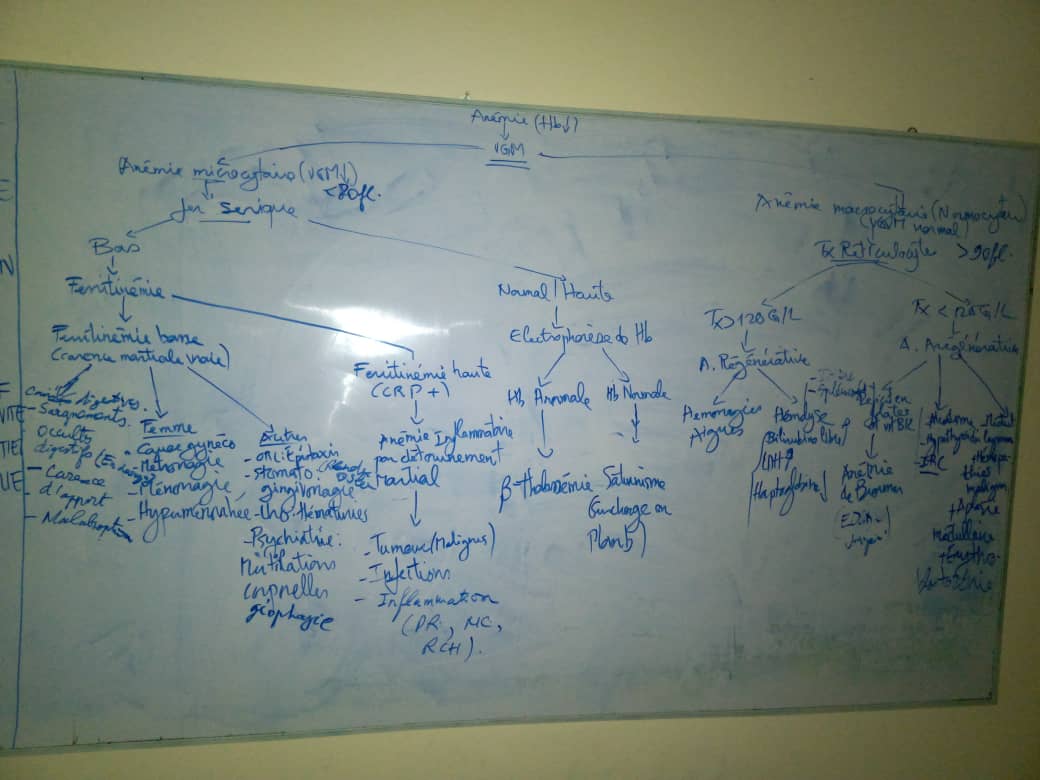 Anémie (Hb↓)
VGM
Anémie microcytaire (VGM↓)
<80fl.
Fer Serique
Bas
Ferritinémie
Ferritinémie basse
(carence martiale vraie)
Digestives.
- Saignements
occultes
digestifs
- Carence
d'apport
- Malabsorption
Femme
- Cause gynéco
- Métrorragie
- Ménorragie,
- Hyperménorrhée
Autres
- ORL: Epistaxis
- Stomato.
gingivorragie
- Hématuries
- Psychiatrie:
Mutilations
corporelles
géophagie
Ferritinémie haute
(CRP +)
Anémie Inflammatoire
par détournement
Martial
- Tumeur (Malignes)
- Infections
- Inflammation
(PR, MC,
RCH).
Normal / Haute
Electrophorèse de Hb
Hb Anormale
Hb Normale
β-Thalassémie
Saturnisme
Surcharge en
Plomb)
Anémie macrocytaire (Normocytaire)
(VGM normal)
Tx Reticulocyte
>90fl.
Tx>120G/L
A. Régénérative
Hemorragies
Aigues
Hémolyse
Bilirubine libre
LDH
Haptoglobine
Tx < 120G/L
A. Arégénérative
Anémie
de Biermer
- Hypothyroïdie
- IRC
médullaire